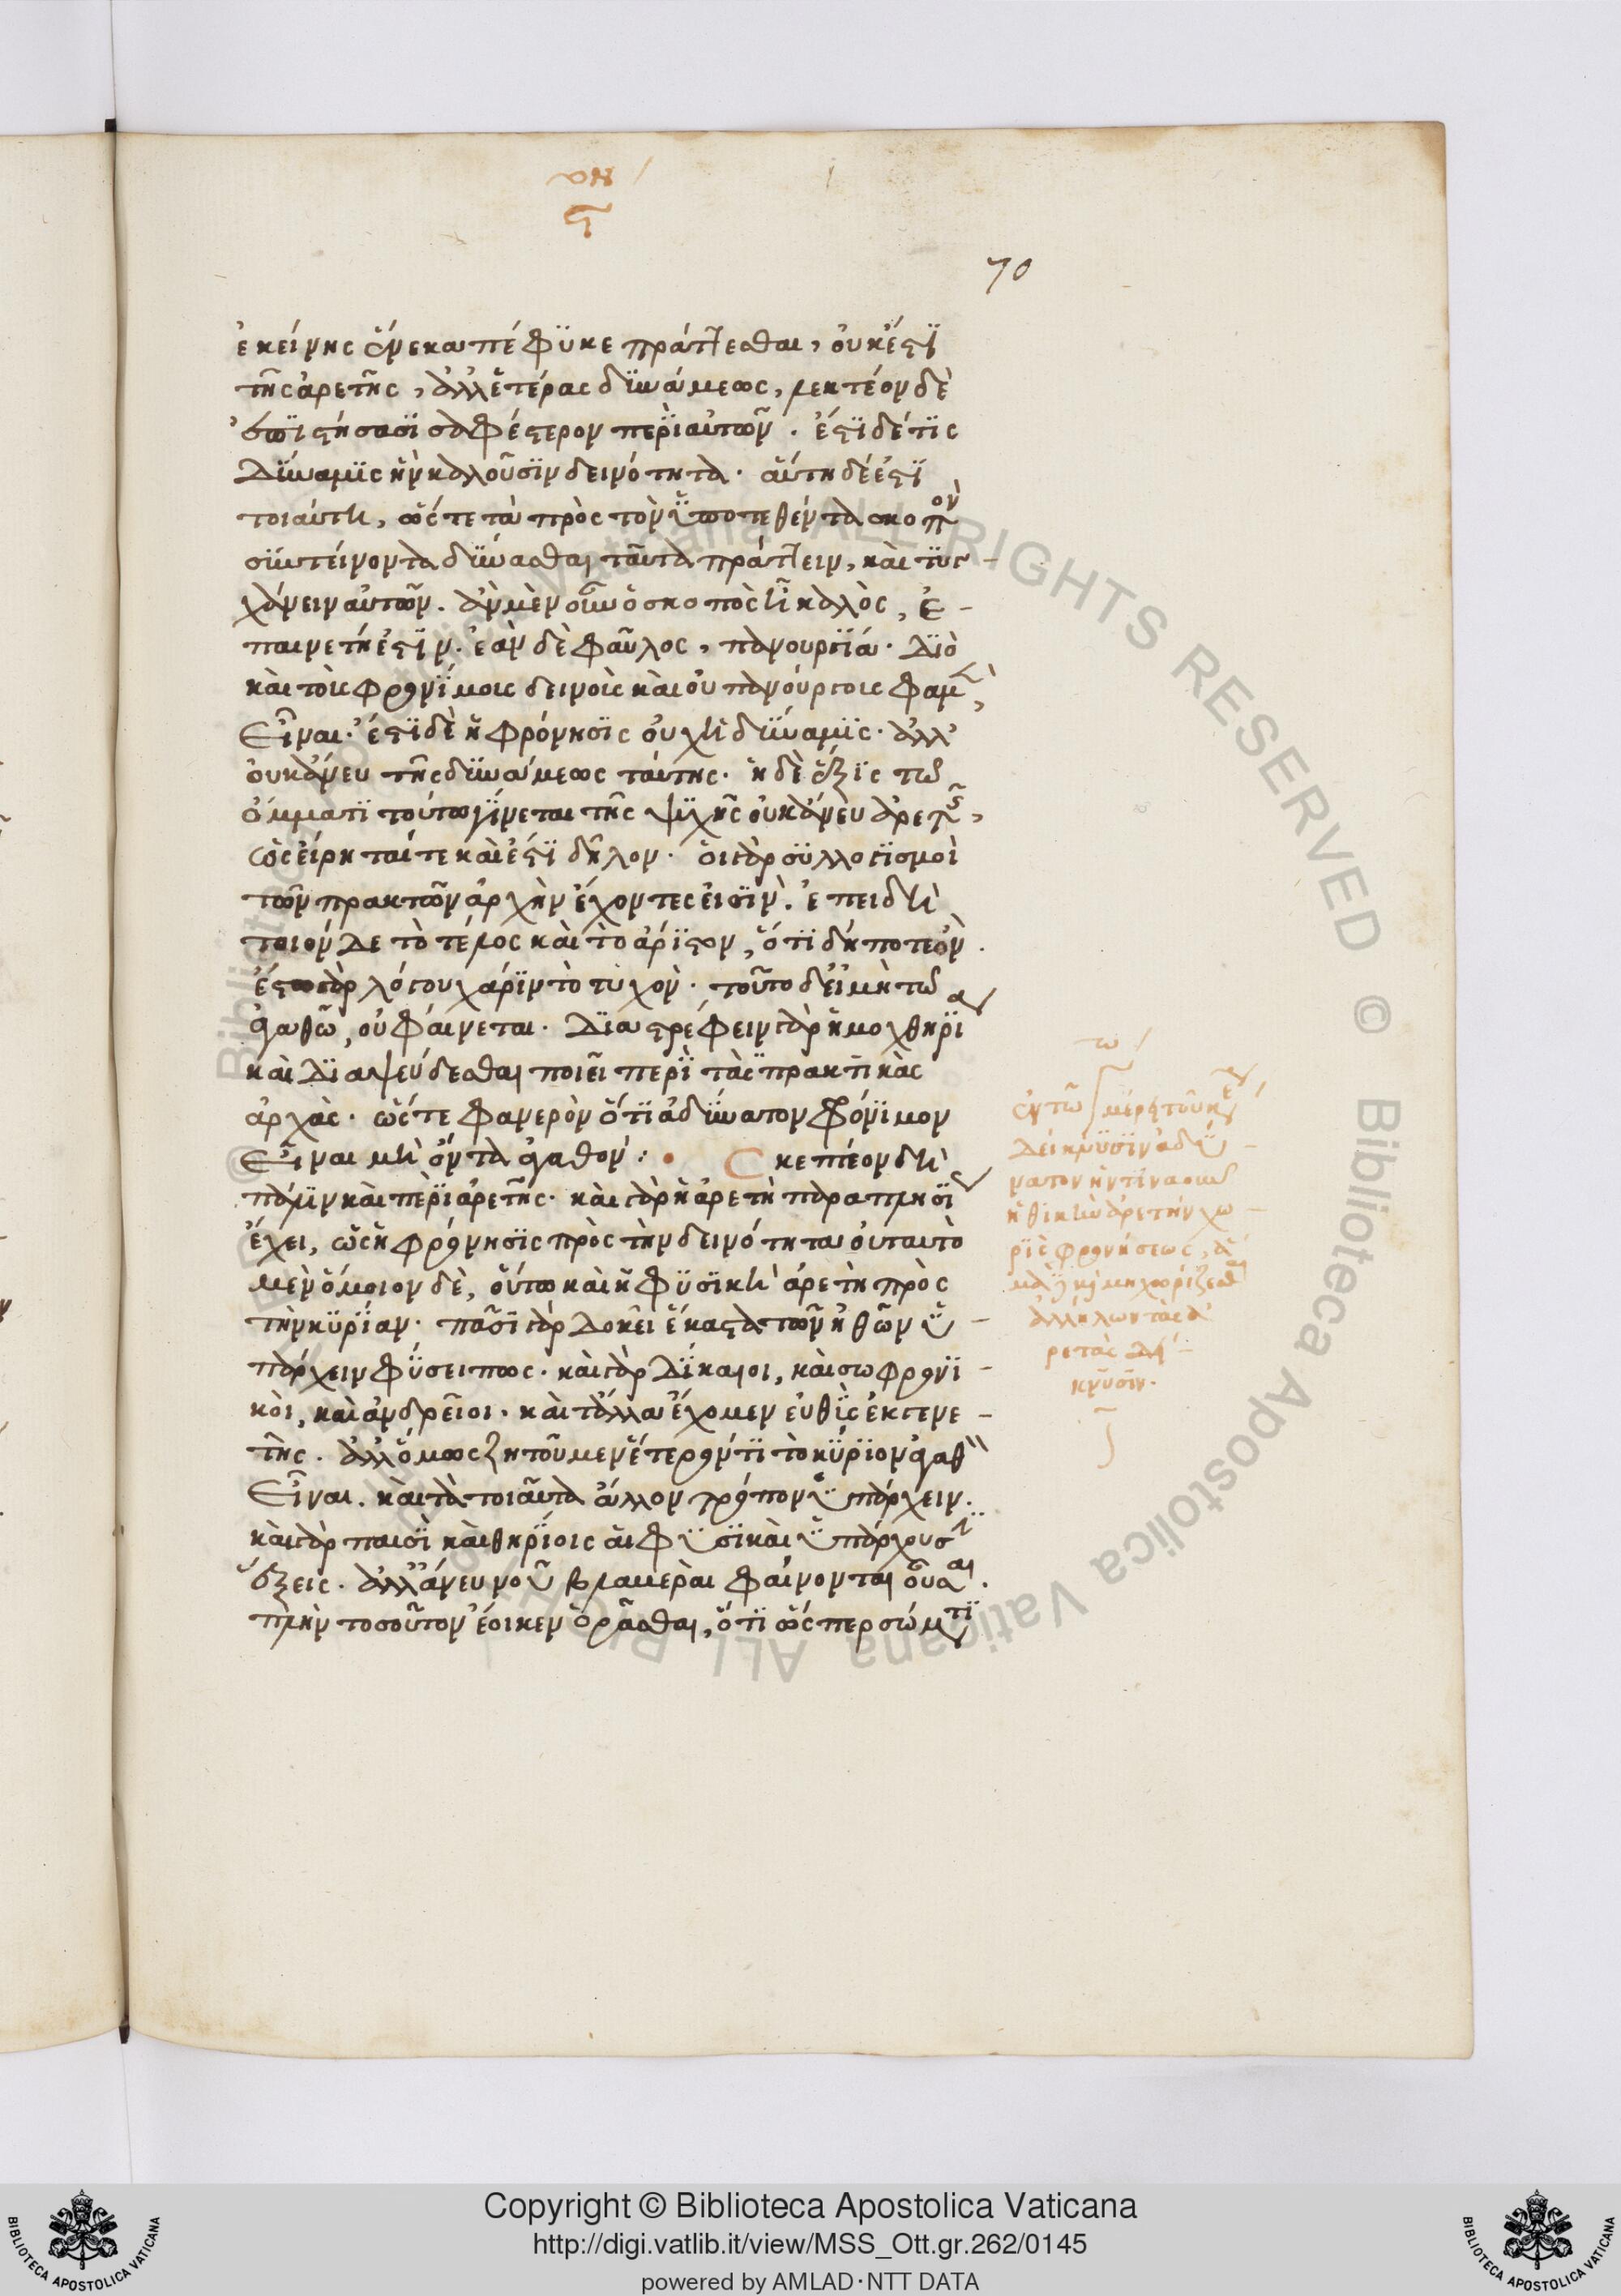 70
ἐκείνης ἕνεκα πέφυκε πράττεσθαι, οὐκ ἔστι
τῆς ἀρετῆς, ἀλλ' ἑτέρας δυνάμεως, λεκτέον δὲ
ἐπιστήσασι σαφέστερον περὶ αὐτῶν. ἔστι δέ τις
δύναμις ἣν καλοῦσιν δεινότητα. αὕτη δέ ἐστι
τοιαύτη, ὥστε τὰ πρὸς τὸν ὑποτεθέντα σκοπὸν
συντείνοντα δύνασθαι ταῦτα πράττειν, καὶ τυγ-
χάνειν αὐτῶν. ἂν μὲν οὖν ὁ σκοπὸς ἦ καλὸς, ἐ-
παινετή ἐστιν. ἐὰν δὲ φαῦλος, πανουργία. διὸ
καὶ τοὺς φρονίμους δεινοὺς καὶ οὐ πανούργους φαμὲν
εἶναι. ἔστι δὲ ἡ φρόνησις οὐχ ἡ δύναμις. ἀλλ'
οὐκ ἄνευ τῆς δυνάμεως ταύτης. ἡ δὲ ἕξις τῶ
ὄμματι τούτω γίνεται τῆς ψυχῆς οὐκ ἄνευ ἀρετῆς,
ὡς εἴρηταί τε καὶ ἔστι δῆλον. οἱ γὰρ συλλογισμοὶ
τῶν πρακτῶν ἀρχὴν ἔχοντες εἰσὶν. ἐπειδὴ
τοιόνδε τὸ τέλος καὶ τὸ ἄριστον, ὅτι δήποτε ὂν.
ἔστω γὰρ λόγου χάριν τὸ τυχὸν. τοῦτο δ' εἰ μὴ τῶ
ἀγαθῶ, οὐ φαίνεται. διαστρέφειν γὰρ ἡ μοχθηρία
καὶ διαψεύδεσθαι ποιεῖ περὶ τὰς πρακτικὰς
ἀρχὰς. ὥστε φανερὸν ὅτι ἀδύνατον φρόνιμον
εἶναι μὴ ὄντα ἀγαθόν: • Σκεπτέον δὴ
πάλιν καὶ περὶ ἀρετῆς. καὶ γὰρ ἡ ἀρετὴ παραπλησίως
ἔχει, ὡς ἡ φρόνησις πρὸς τὴν δεινότητα οὐ ταυτὸ
μὲν ὅμοιον δὲ, οὕτω καὶ ἡ φυσικὴ ἀρετὴ πρὸς
τὴν κυρίαν. πᾶσι γὰρ δοκεῖ ἕκαστα τῶν ἠθῶν ὑ-
πάρχειν φύσει πως. καὶ γὰρ δίκαιοι, καὶ σωφρονι-
κοὶ, καὶ ἀνδρεῖοι. καὶ τἄλλα ἔχομεν εὐθὺς ἐκ γενε-
τῆς. ἀλλ' ὅμως ζητοῦμεν ἕτερόν τι τὸ κύριον ἀγαθὸν
εἶναι. καὶ τὰ τοιαῦτα ἄλλον τρόπον ὑπάρχειν.
καὶ γὰρ παισὶ καὶ θηρίοις αἱ φυσικαὶ ὑπάρχουσιν
ἕξεις. ἀλλ' ἄνευ νοῦ βλαβεραὶ φαίνονται οὖσαι.
πλὴν τοσοῦτον ἔοικεν ὁρᾶσθαι, ὅτι ὥσπερ σώματι
δείκνυσιν ἀδύ-
νατον ἡντιναοῦν
ἠθικὴν ἀρετὴν χω-
ρὶς φρονήσεως,
ἀλλήλων τὰς ἀ-
ρετὰς δεί-
κνυσιν.
Copyright © Biblioteca Apostolica Vaticana
http://digi.vatlib.it/view/MSS_Ott.gr.262/0145
powered by AMLAD·NTT DATA